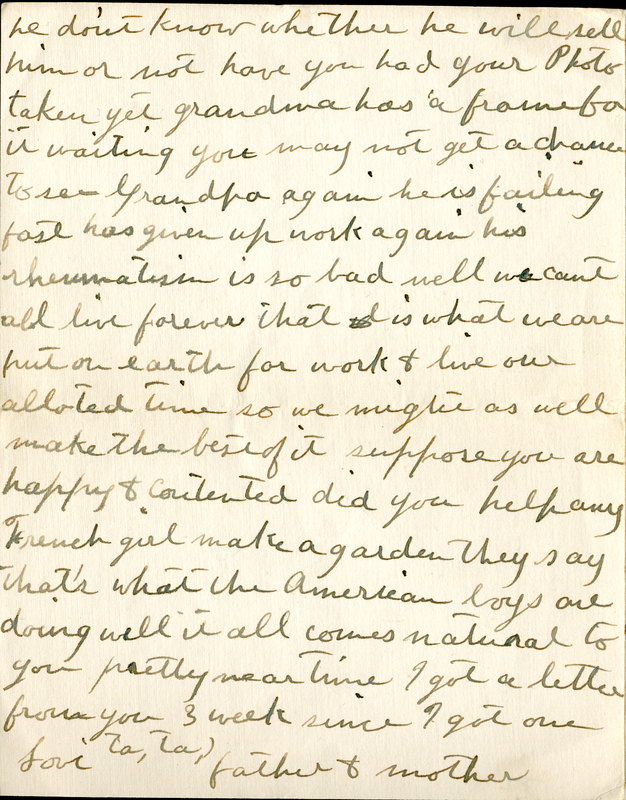 he dont know whether he will sell
him or not have you had your Photo
taken yet grandma has a frame for
it waiting you may not get a chance
to see Grandpa again he is failing
fast has given up work again his
rheumatism is so bad well we cant
all live forever that is what we are
put on earth for work & live our
alloted time so we might as well
make the best of it suppose you are
happy & contented did you help any
French girl make a garden they say
that's what the American boys are
doing well it all comes natural to
you pretty near time I got a letter
from you 3 week since I got one
Love ta, ta, father & mother